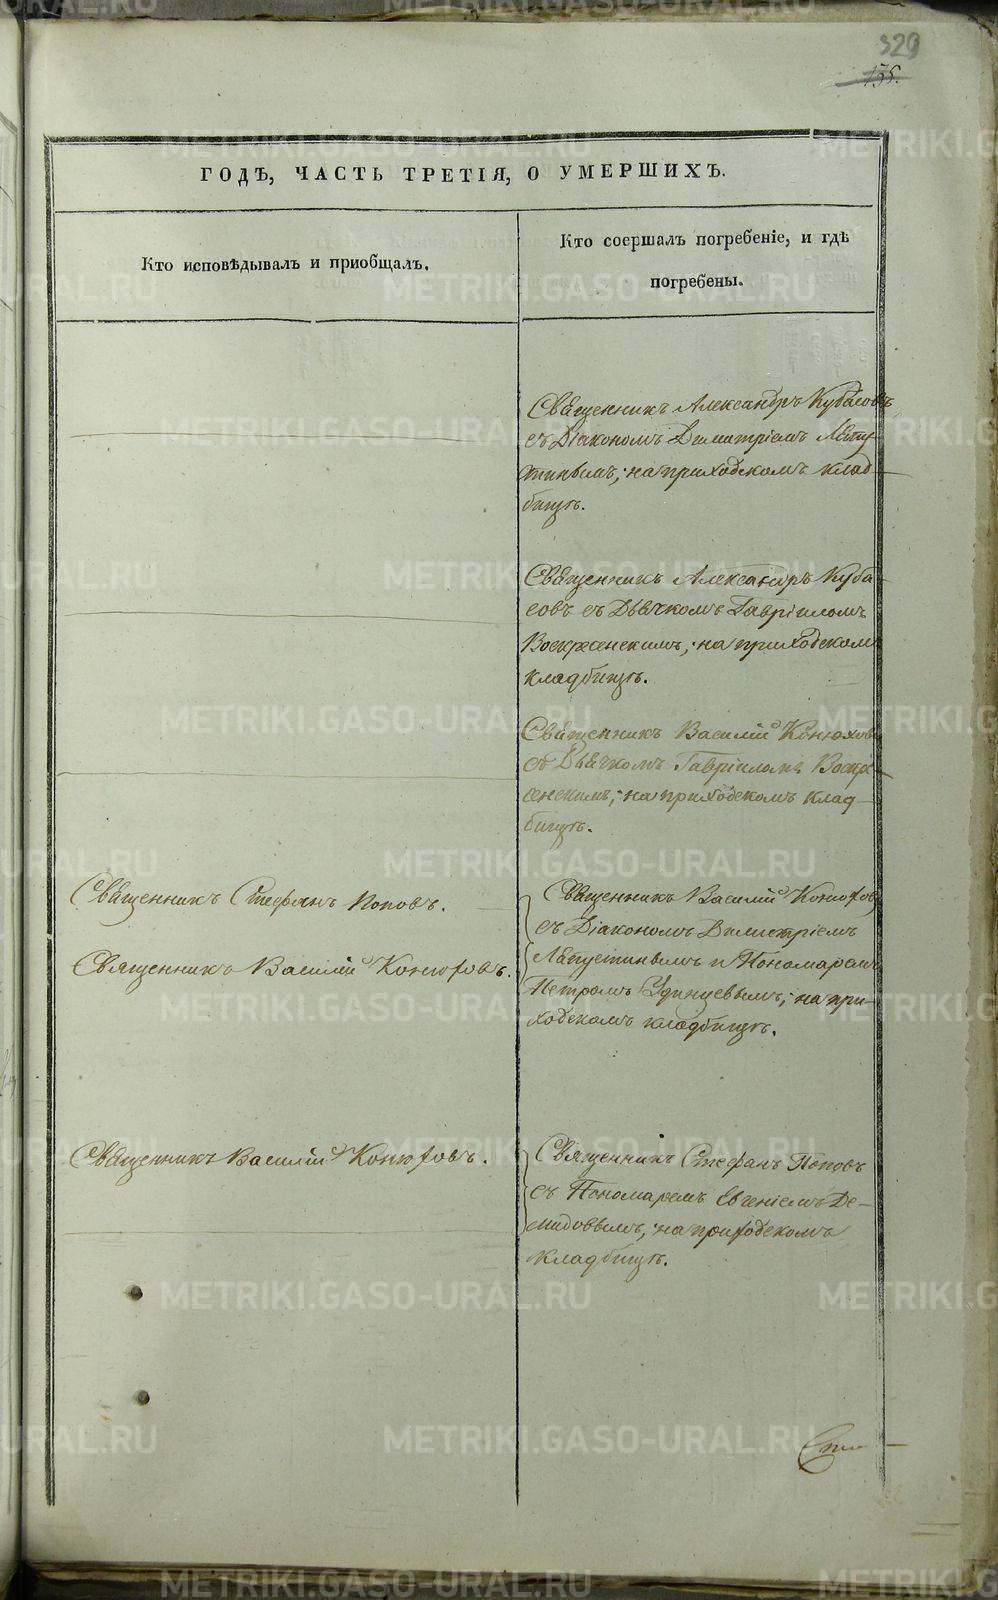 329
135.
ГОДЪ, ЧАСТЬ ТРЕТІЯ, О УМЕРШИХЪ.
Кто исповѣдывалъ и приобщалъ.
Кто соершалъ погребеніе, и гдѣ
погребены.
Священникъ Александръ Кубасовъ
съ Діакономъ Димитріемъ Лепу-
стинымъ; на приходскомъ клад-
бищѣ.
Священникъ Александръ Куба-
совъ съ Дьячкомъ Гавріиломъ
Воскресенскимъ; на приходскомъ
кладбищѣ.
Священникъ Василій Конюховъ
съ Дьячкомъ Гавріиломъ Воскре-
сенскимъ; на приходскомъ клад-
бищѣ.
Священникъ Стефанъ Поповъ.
Священникъ Василій Конюховъ.
Священникъ Василій Конюховъ
съ Діакономъ Димитріемъ
Лепустинымъ и Пономаремъ
Петромъ Удинцевымъ; на при-
ходскомъ кладбищѣ.
Священникъ Василій Конюховъ.
Священникъ Стефанъ Поповъ
съ Пономаремъ Евгеніемъ Де-
мидовымъ; на приходскомъ
кладбищѣ.
METRIKI.GASO-URAL.RU